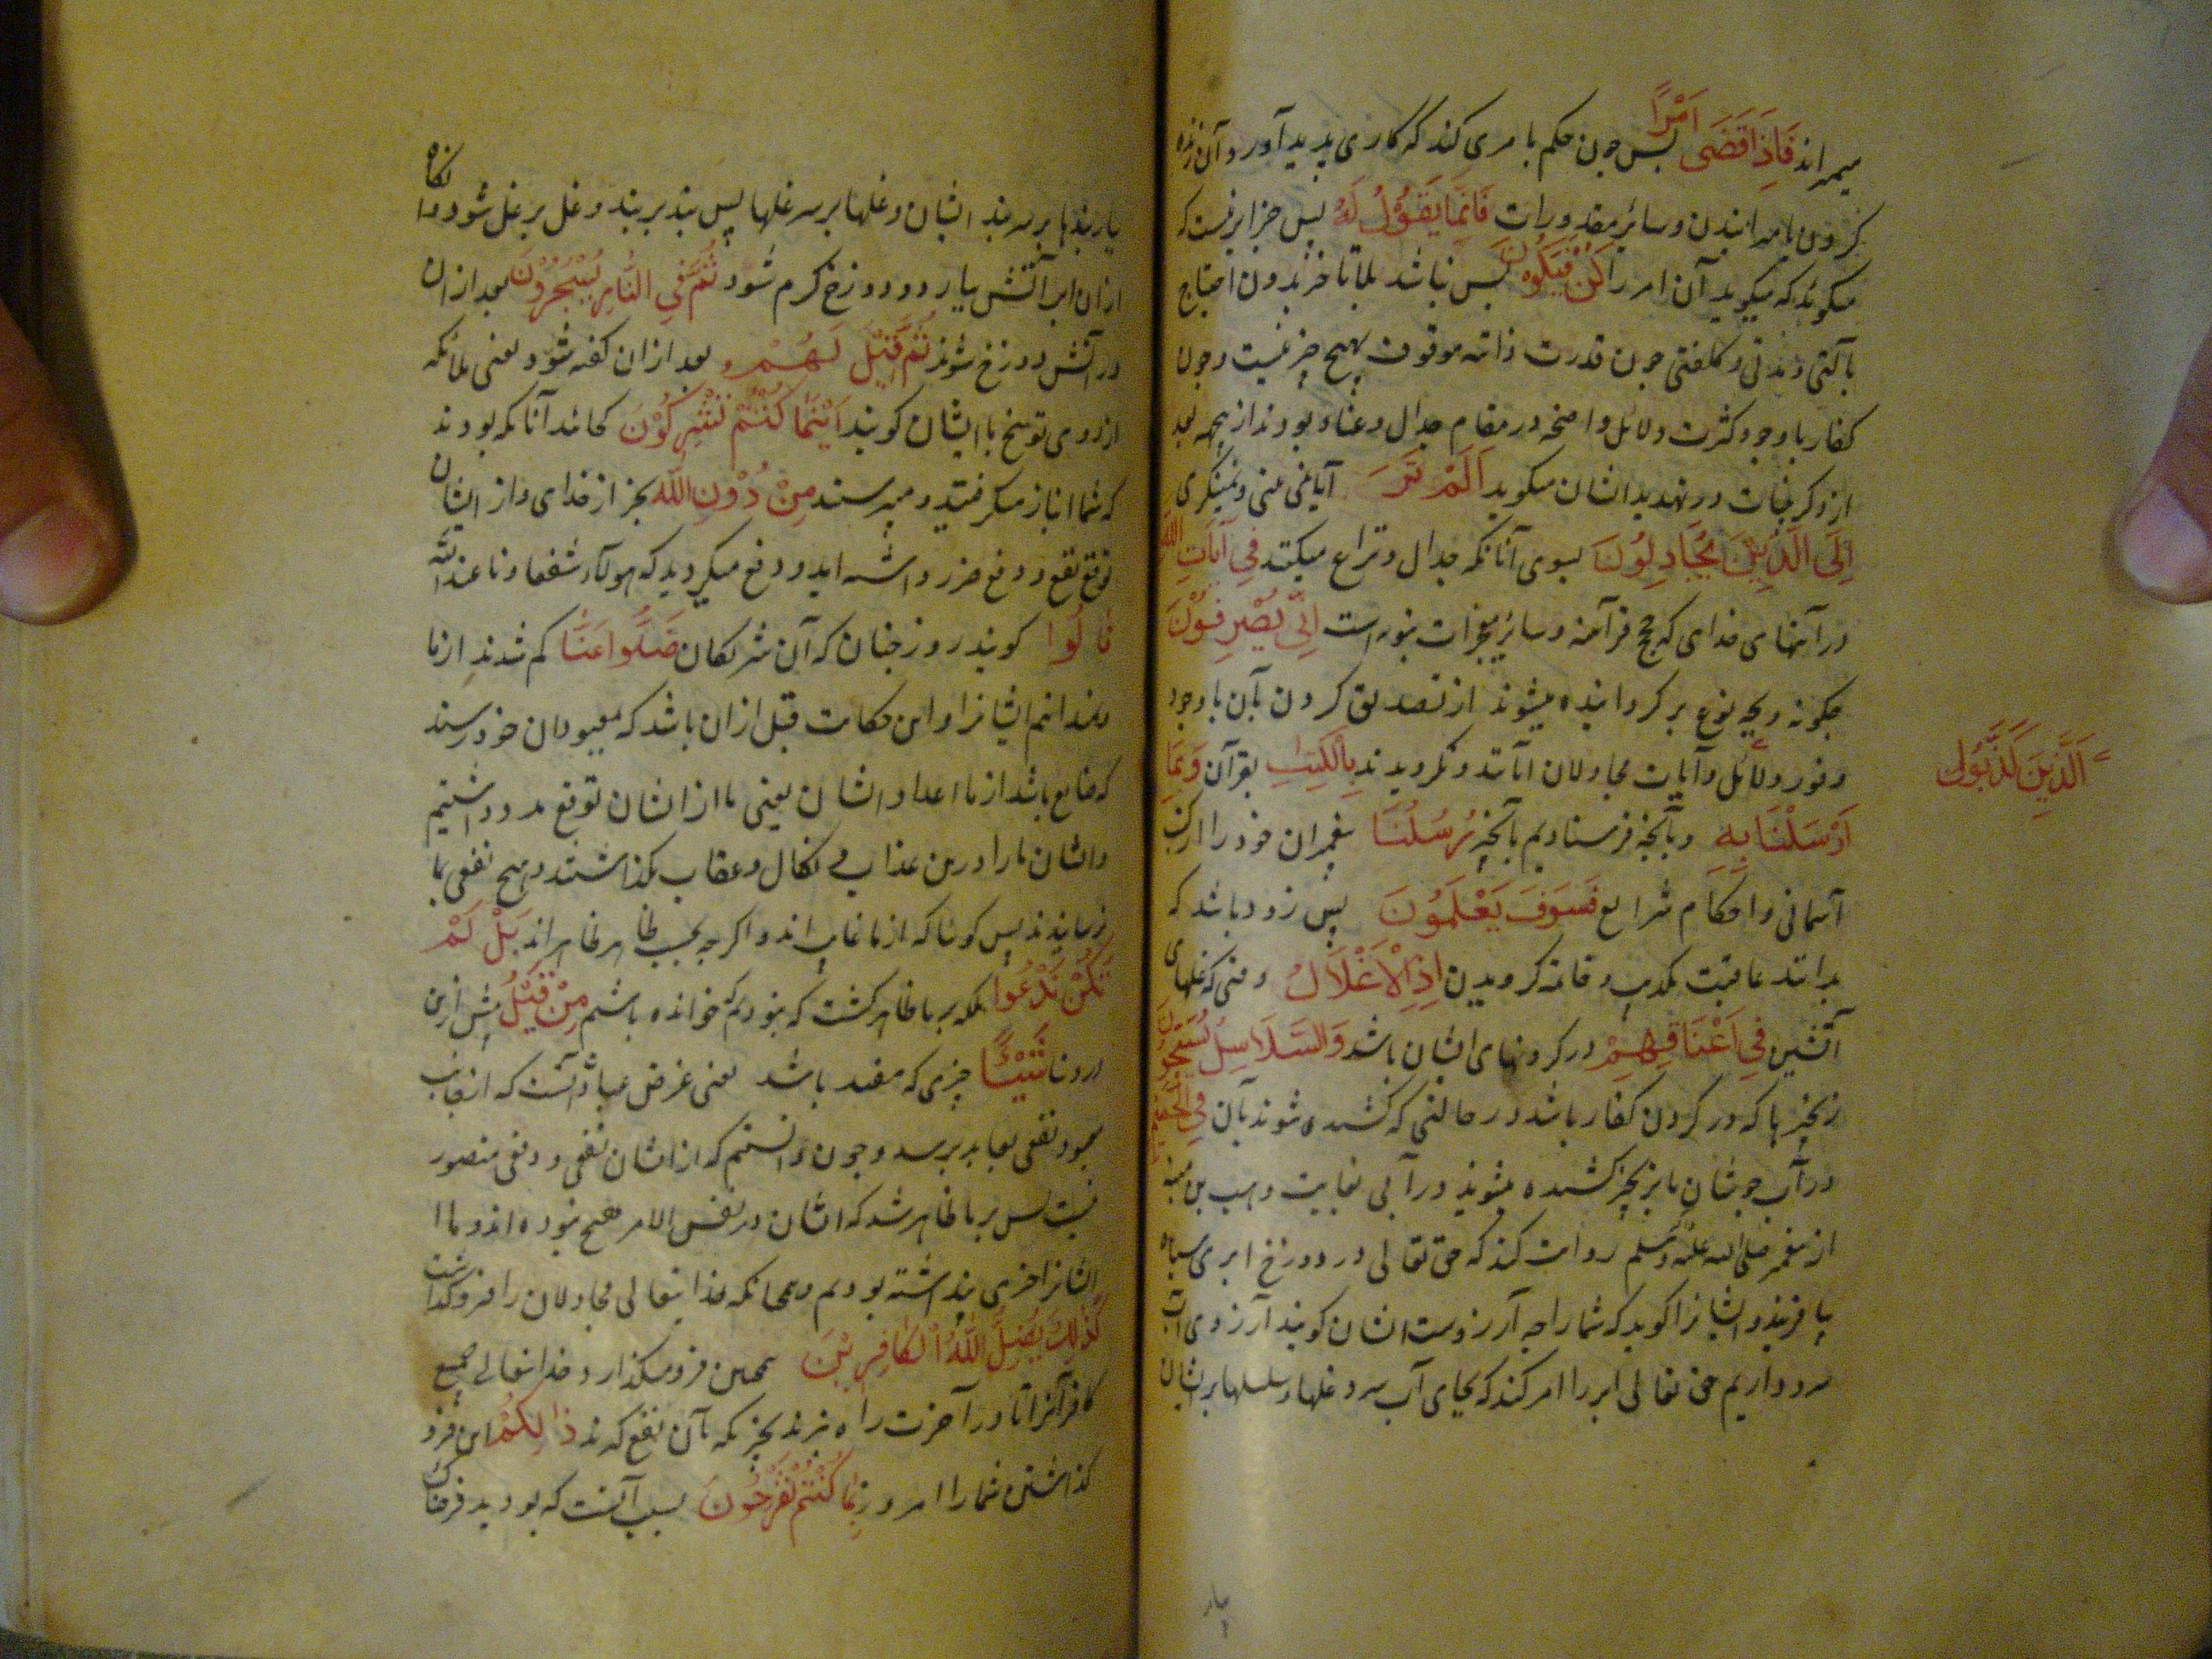 میمیراند فَاِذَا قَضَى اَمْرًا پس چون حکم بامری کند که کاری پدید آورد و آن زنده
کردن یا میرانیدن و سائر مقدورات فَاِنَّمَا يَقُوْلُ لَهُ پس جز این نیست که
میگوید که میگوید آن امر را كُنْ فَيَكُوْنُ پس باشد بلا تاخر بدون احتیاج
بآلتی و مدتی و کلفتی چون قدرت ذاتیه موقوف بهیچ چیز نیست و چون
کفار با وجود کثرت دلائل واضحه در مقام جدال و عناد بودند ازینجهه بعد
از ذکر بینات در تهدید ایشان میگوید اَلَمْ تَرَ آیا نمی بینی و نمینگری
اِلَى الَّذِيْنَ يُجَادِلُوْنَ بسوی آنانکه جدال و نزاع میکنند فِي آيَاتِ اللّٰهِ
در آیتهای خدای که حجج قرآنیه و سائر معجزات نبویه است اَنّٰى يُصْرَفُوْنَ
چگونه و بچه نوع برگردانیده میشوند از تصدیق کردن بآن با وجود
اَلَّذِيْنَ كَذَّبُوْا
وفور دلائل و آیات مجادلان آنانند و نگرویدند بِالْكِتٰبِ بقرآن وَبِمَا
اَرْسَلْنَا بِهٖ و بآنچه فرستادیم بآنچیز رُسُلَنَا پیغمبران خود را از کتب
آسمانی و احکام شرایع فَسَوْفَ يَعْلَمُوْنَ پس زود باشد که
بدانند عاقبت تکذیب و خاتمه گرویدن اِذِ الْاَغْلَالُ وقتی که غلهای
آتشین فِي اَعْنَاقِهِمْ در گردنهای ایشان باشد وَالسَّلَاسِلُ يُسْحَبُوْنَ
زنجیرها که در گردن کفار باشد در حالتی که کشیده شوند بآن فِي الْحَمِيْمِ
در آب جوشان با زنجیر کشیده میشوند در آبی نهایت وهب بن منبه
از پیغمبر صلی الله علیه وسلم روایت کند که حق تعالی در دوزخ ابری سیاه
بیافریند و ایشانرا گوید که شما را چه آرزوست ایشان گویند آرزوی آب
سرد داریم حق تعالی ابر را امر کند که بجای آب سرد غلها و سلسلها بر ایشان
بار
یارد بندها بر سر بند ایشان و غلها بر سر غلها پس بند بر بند و غل بر غل شود و آنکاه
از ان ابر آتش بیارد و دوزخ گرم شود ثُمَّ فِي النَّارِ يُسْجَرُوْنَ بعد از ان
در آتش دوزخ شوند ثُمَّ قِيْلَ لَهُمْ بعد ازان گفته شود یعنی ملائکه
از روی توبیخ با ایشان گویند اَيْنَمَا كُنْتُمْ تُشْرِكُوْنَ کجائند آنانکه بودند
که شما انباز میگرفتید و میپرستید مِنْ دُوْنِ اللّٰهِ بجز از خدای و از ایشان
توقع نفع و دفع ضرر داشته اید و دفع میکردید که هولاء شفعاؤنا عند الله
قَالُوْا گویند روز جنان که آن شریکان ضَلُّوْا عَنَّا گم شدند از ما
نمیدانیم ایشانرا و این حکایت قبل ازان باشد که معبودان خود رسند
که ضایع باشد از ما اعداد ایشان یعنی ما از ایشان توقع مدد داشتیم
و ایشان ما را درین عذاب و نکال و عقاب بگذاشتند و هیچ نفعی بما
نرسانیدند پس گوئیا که از ما غایب اند و اگر چه بحسب ظاهر ظاهراند بَلْ لَمْ
نَكُنْ نَدْعُوْا بلکه بر ما ظاهر گشت که نبودیم که خوانده باشیم مِنْ قَبْلُ پیش ازین
در دنیا شَيْئًا چیزی که مفید باشد یعنی غرض عبادت آنست که از جانب
معبود نفعی بعابد برسد و چون دانستیم که از ایشان نفعی و دفعی متصور
نیست پس بر ما ظاهر شد که ایشان در نفس الامر هیچ نبوده اند و ما
ایشانرا خدای پنداشته بودیم و همچنانکه خدایتعالی مجادلان را فرو گذاشت
كَذٰلِكَ يُضِلُّ اللّٰهُ الْكَافِرِيْنَ همچنین فرو میگذارد خدایتعالی جمیع
کافرانرا تا در آخرت راه نبرند بچیزیکه بآن نفع گیرند ذٰلِكُمْ این فرو
گذاشتن شما را امروز بِمَا كُنْتُمْ تَفْرَحُوْنَ بسبب آنست که بودید فرحناک